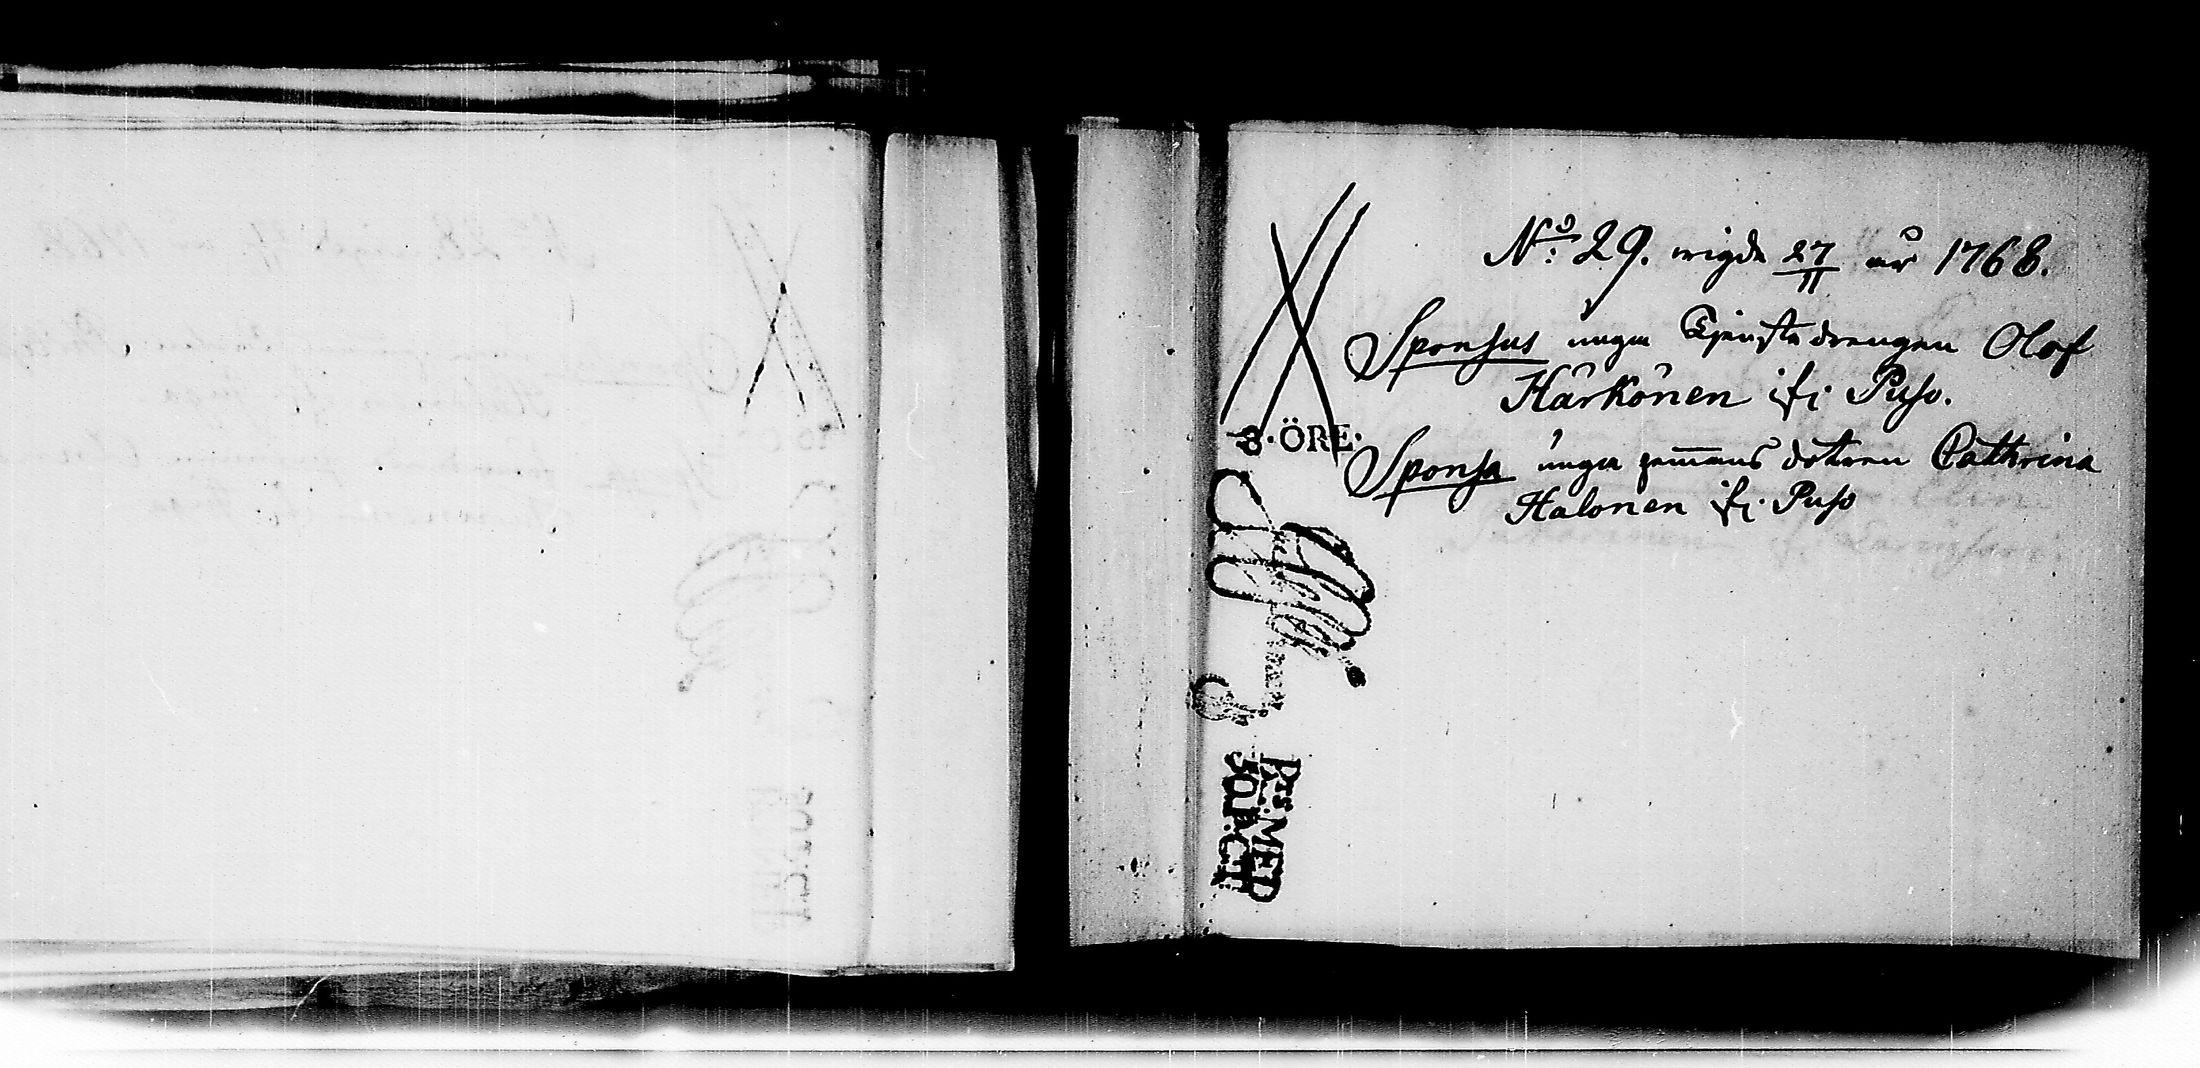 No: 29. wigde 27/11 år 1768.
Sponsus unga Tjenstedrengen Olof
Härkönen ifr. Puso.
8·ÖRE·
Sponsa unga hemans dottren Cathrina
Halonen ifr. Puso
PTS. MED
50. P. CT.